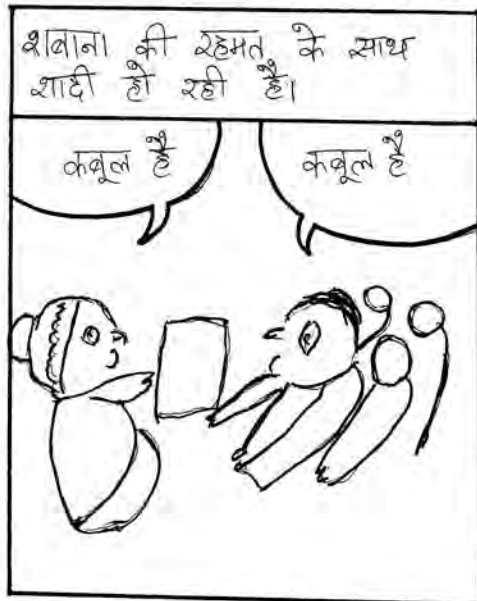 शबाना की रहमत के साथ
शादी हो रही है।
कबूल है
कबूल है